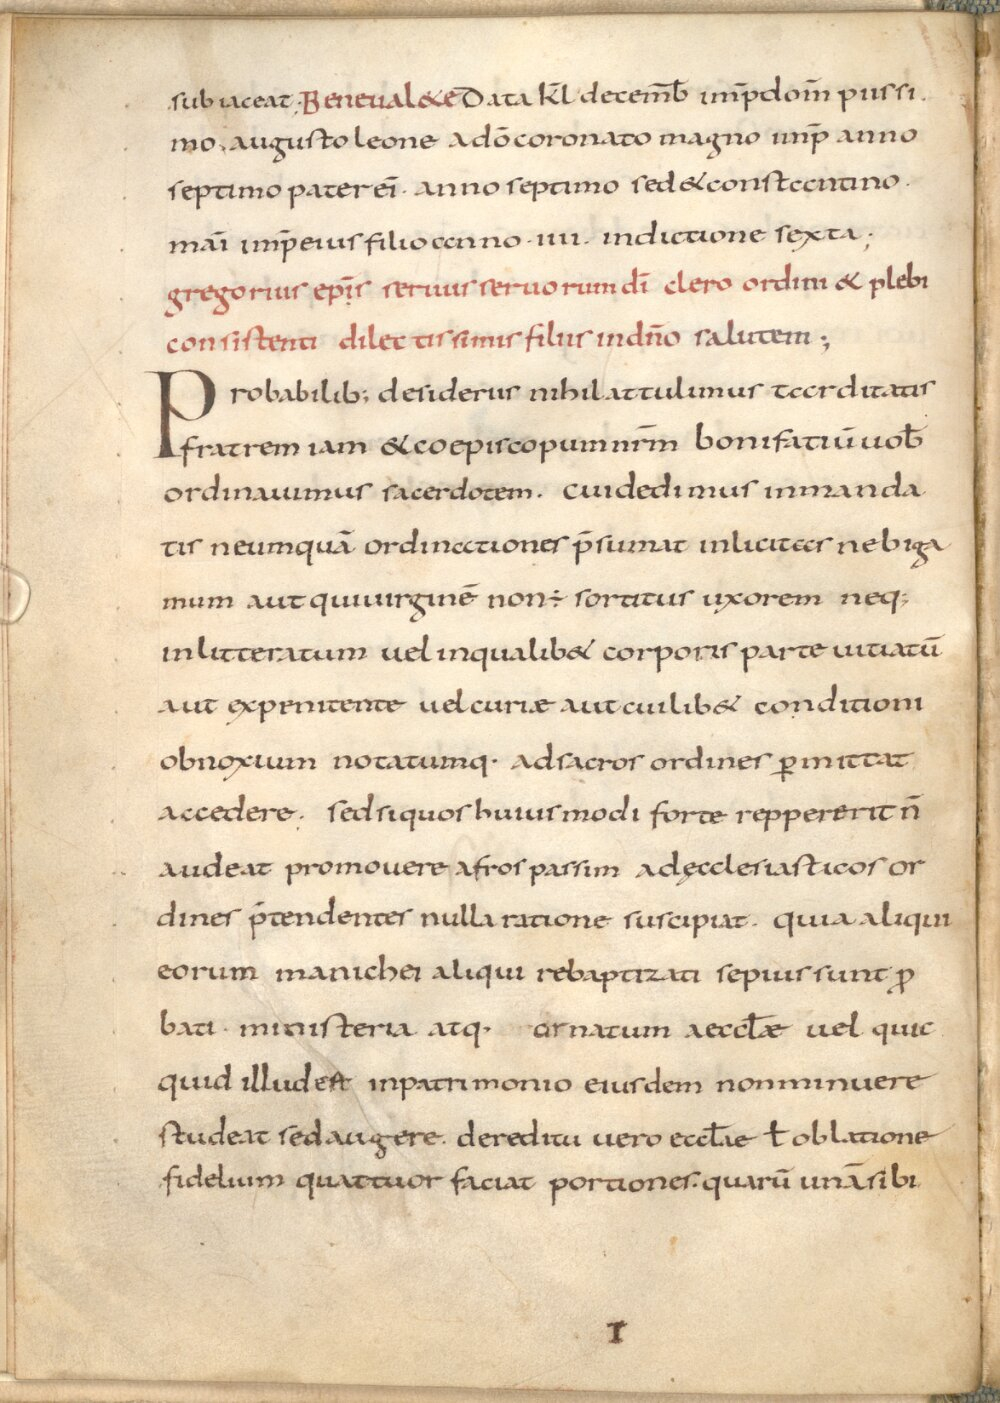 subiaceat. Beneual&e Data kl̅ decemb̅ imp̅ dom̅ piissi
mo augusto leone ado̅ coronato magno imp̅ anno
septimo pater ei̅. anno septimo sed & constantino
mai̅ imp̅ eius filio anno. iiii. indictione sexta;
gregorius ep̅is seruus seruorum di̅ clero ordini & plebi
consistenti dilectissimis filiis in dn̅o salutem;
Probabilib; desideriis nihil attulimus tarditatis
fratrem iam & coepiscopum nr̅m bonifatiu̅ uob̅
ordinauimus sacerdotem. cui dedimus in manda
tis ne umqua̅ ordinationes p̅sumat inlicitas ne biga
mum aut qui uirgine̅ non ÷ sortitus uxorem neq;
inlitteratum uel in qualib& corporis parte uitiatu̅
aut expenitente uel curiæ aut cuilib& conditioni
obnoxium notatumq. ad sacros ordines ꝑmittat
accedere. sed si quos huiusmodi forte reppererit n̅
audeat promouere afros passim ad ęcclesiasticos or
dines p̅tendentes nulla ratione suscipiat. quia aliqui
eorum manichei aliqui rebaptizati sepius sunt ꝓ
bati. ministeria atq. ornatum aeccl̅æ uel quic
quid illud est in patrimonio eiusdem non minuere
studeat sed augere. de reditu uero eccl̅ae ł oblatione
fidelium quattuor faciat portiones. quaru̅ una̅ sibi
I